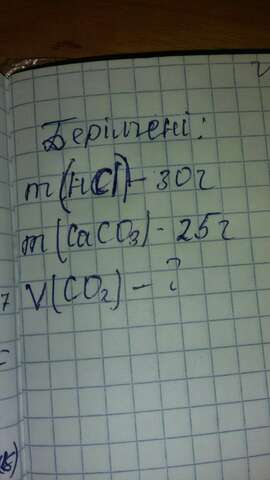 Берілгені:
m(HCl) - 30г
m(CaCO₃) - 25г
V(CO₂) - ?